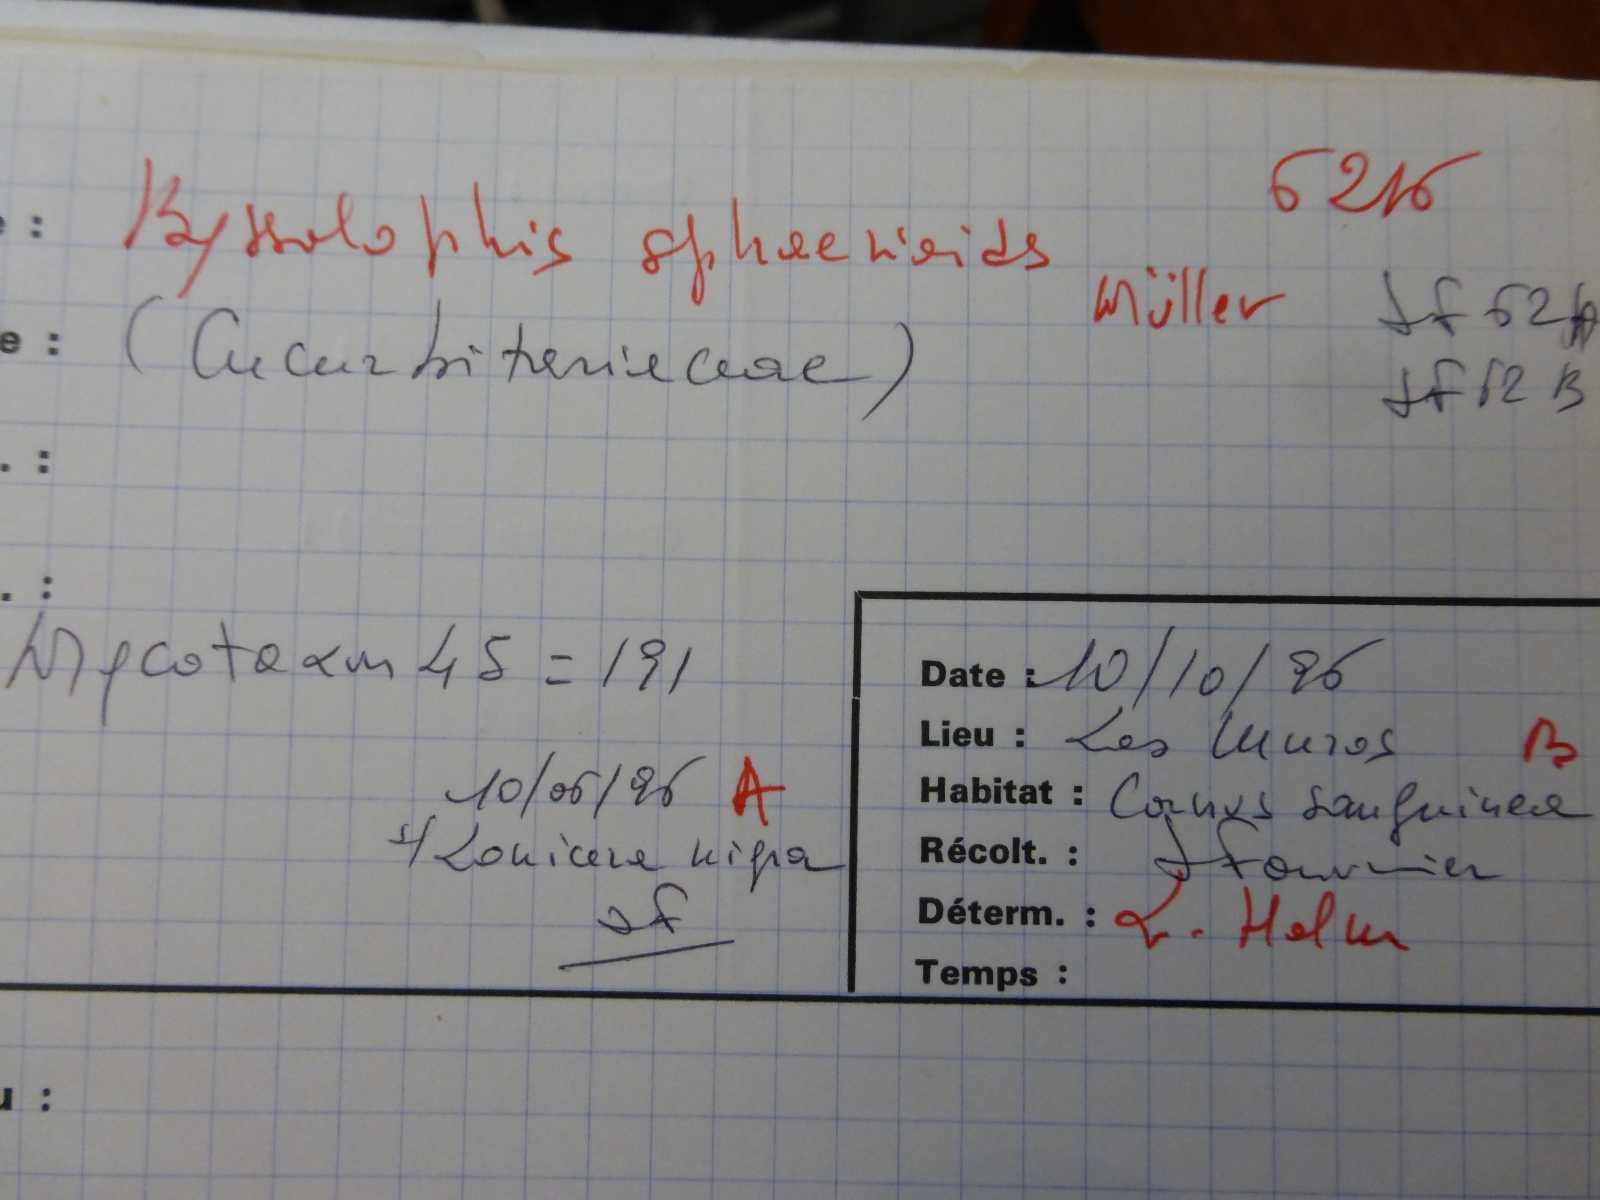 6216
e : Byssolophis sphaerioides Müller
JF 62 A
e : (Cucurbitariaceae)
JF 62 B
. :
. :
Mycotaxon 45 = 191
Date : 10/10/96
Lieu : Les Muros B
10/06/96 A
Habitat : Cornus sanguinea
s/ Lonicera nigra
Récolt. : J Fournier
JF
Déterm. : L. Holm
Temps :
u :